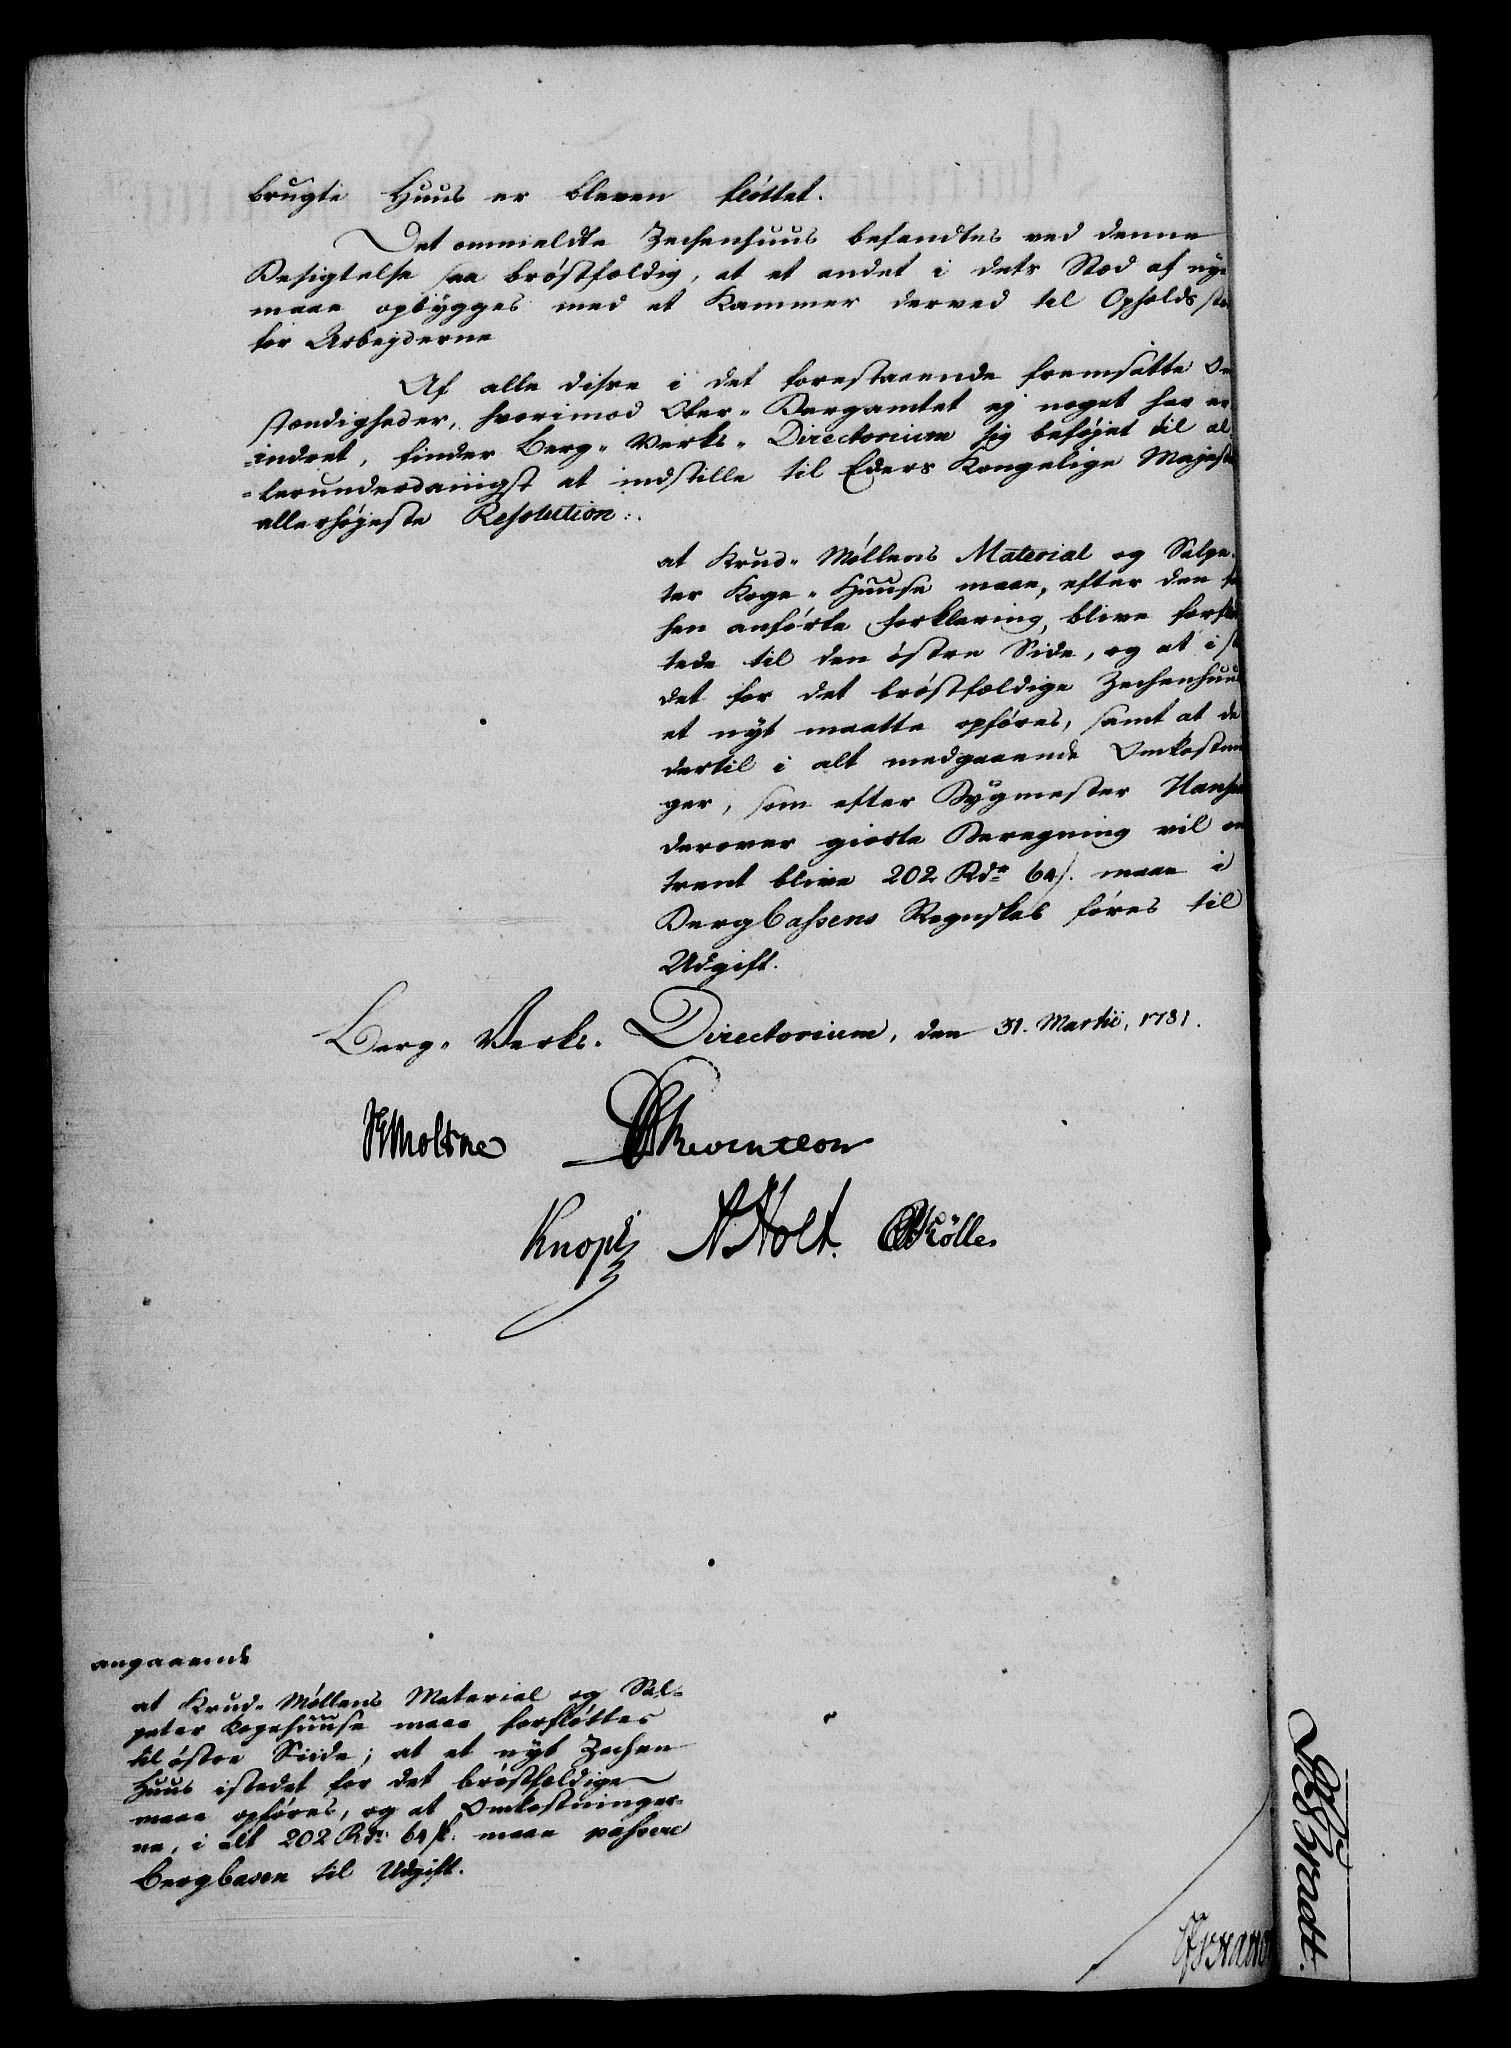 brugte Huus er bleven flöttet.
Det ommeldte Zechenhuus befandtes ved denne
Besigtelse saa bröstfældig, at et andet i dets Stæd af nye
maae opbygges med et Kammer derved til Opholds st
for Arbejderne
Af alle disse i det forestaaende fremsatte O
stændigheder, hvorimod Ober- Bergamtet ej noget har er
-indret, finder Berg- Verks- Directorium sig beföjet til al
-lerunderdanigst at indstille til Eders Kongelige Majestæ
allerhöjeste Resolution:.
at Krud- Möllens Material og Salpe-
ter Koge- Huuse maae, efter den
hen anförte Forklaring, blive forflö
tede til den östre Side, og at i st
det for det bröstfældige Zechenhuus
et nyt maatte opföres, samt at de
dertil i alt medgaaende Omkostnin
ger, som efter Bygmester Hansen
derover giorte Beregning vil om
trent blive 202 Rdr 64 s. maae i
Bergcassens Regnskab föres til
Udgift.
Berg- Verks- Directorium, den 31. Martii, 1781.
Moltke Reventlow
Knoph Holt. Mölle
angaaende
at Krud- Möllens Material og Sal-
peter Kogehuuse maae forflöttes
til östre Siide; at et nyt Zechen
Huus istedet for det bröstfældige
maae opföres, og at Omkostninger-
ne, i alt 202 Rdr 64 sk. maae passere
Bergcassen til Udgift.